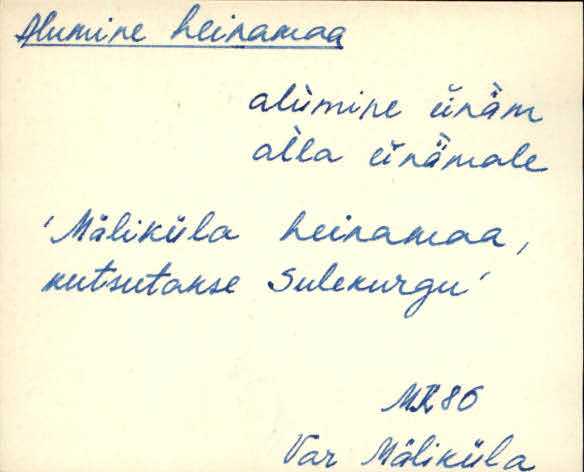 Alumine heinamaa
alùmine èinäm
al̀la èinämale
'Mäliküla heinamaa,
kutsutakse Sulekurgu'
MR 86
Var Mäliküla